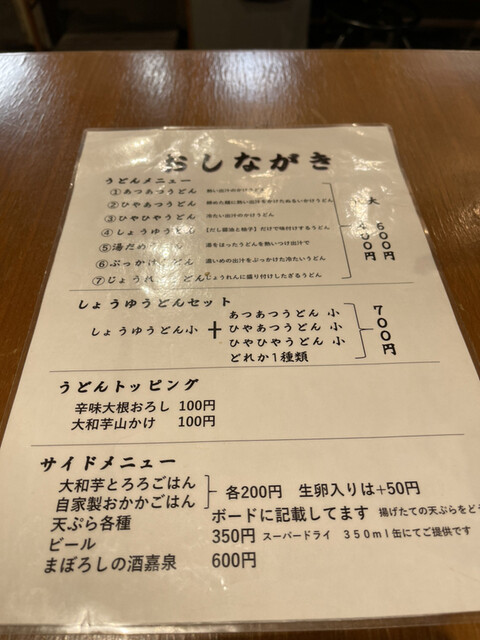 おしながき
うどんメニュー
①あつあつうどん 熱い出汁のかけうどん
②ひやあつうどん 締めた麺に熱い出汁をかけたぬるいかけうどん
③ひやひやうどん 冷たい出汁のかけうどん
④しょうゆうどん 【だし醤油と柚子】だけで味付けするうどん
⑤湯だめ 湯をはったうどんを熱いつけ出汁で
⑥ぶっかけ 濃いめの出汁をぶっかけた冷たいうどん
⑦じょうれ どん じょうれんに盛り付けしたざるうどん
大
00円
500円
しょうゆうどんセット
しょうゆうどん小 +
あつあつうどん 小
ひやあつうどん 小
ひやひやうどん 小
どれか1種類
700円
うどんトッピング
辛味大根おろし 100円
大和芋山かけ 100円
サイドメニュー
大和芋とろろごはん
自家製おかかごはん
各200円 生卵入りは+50円
天ぷら各種 ボードに記載してます 揚げたての天ぷらをど
ビール 350円 スーパードライ 350ml缶にてご提供です
まぼろしの酒嘉泉 600円